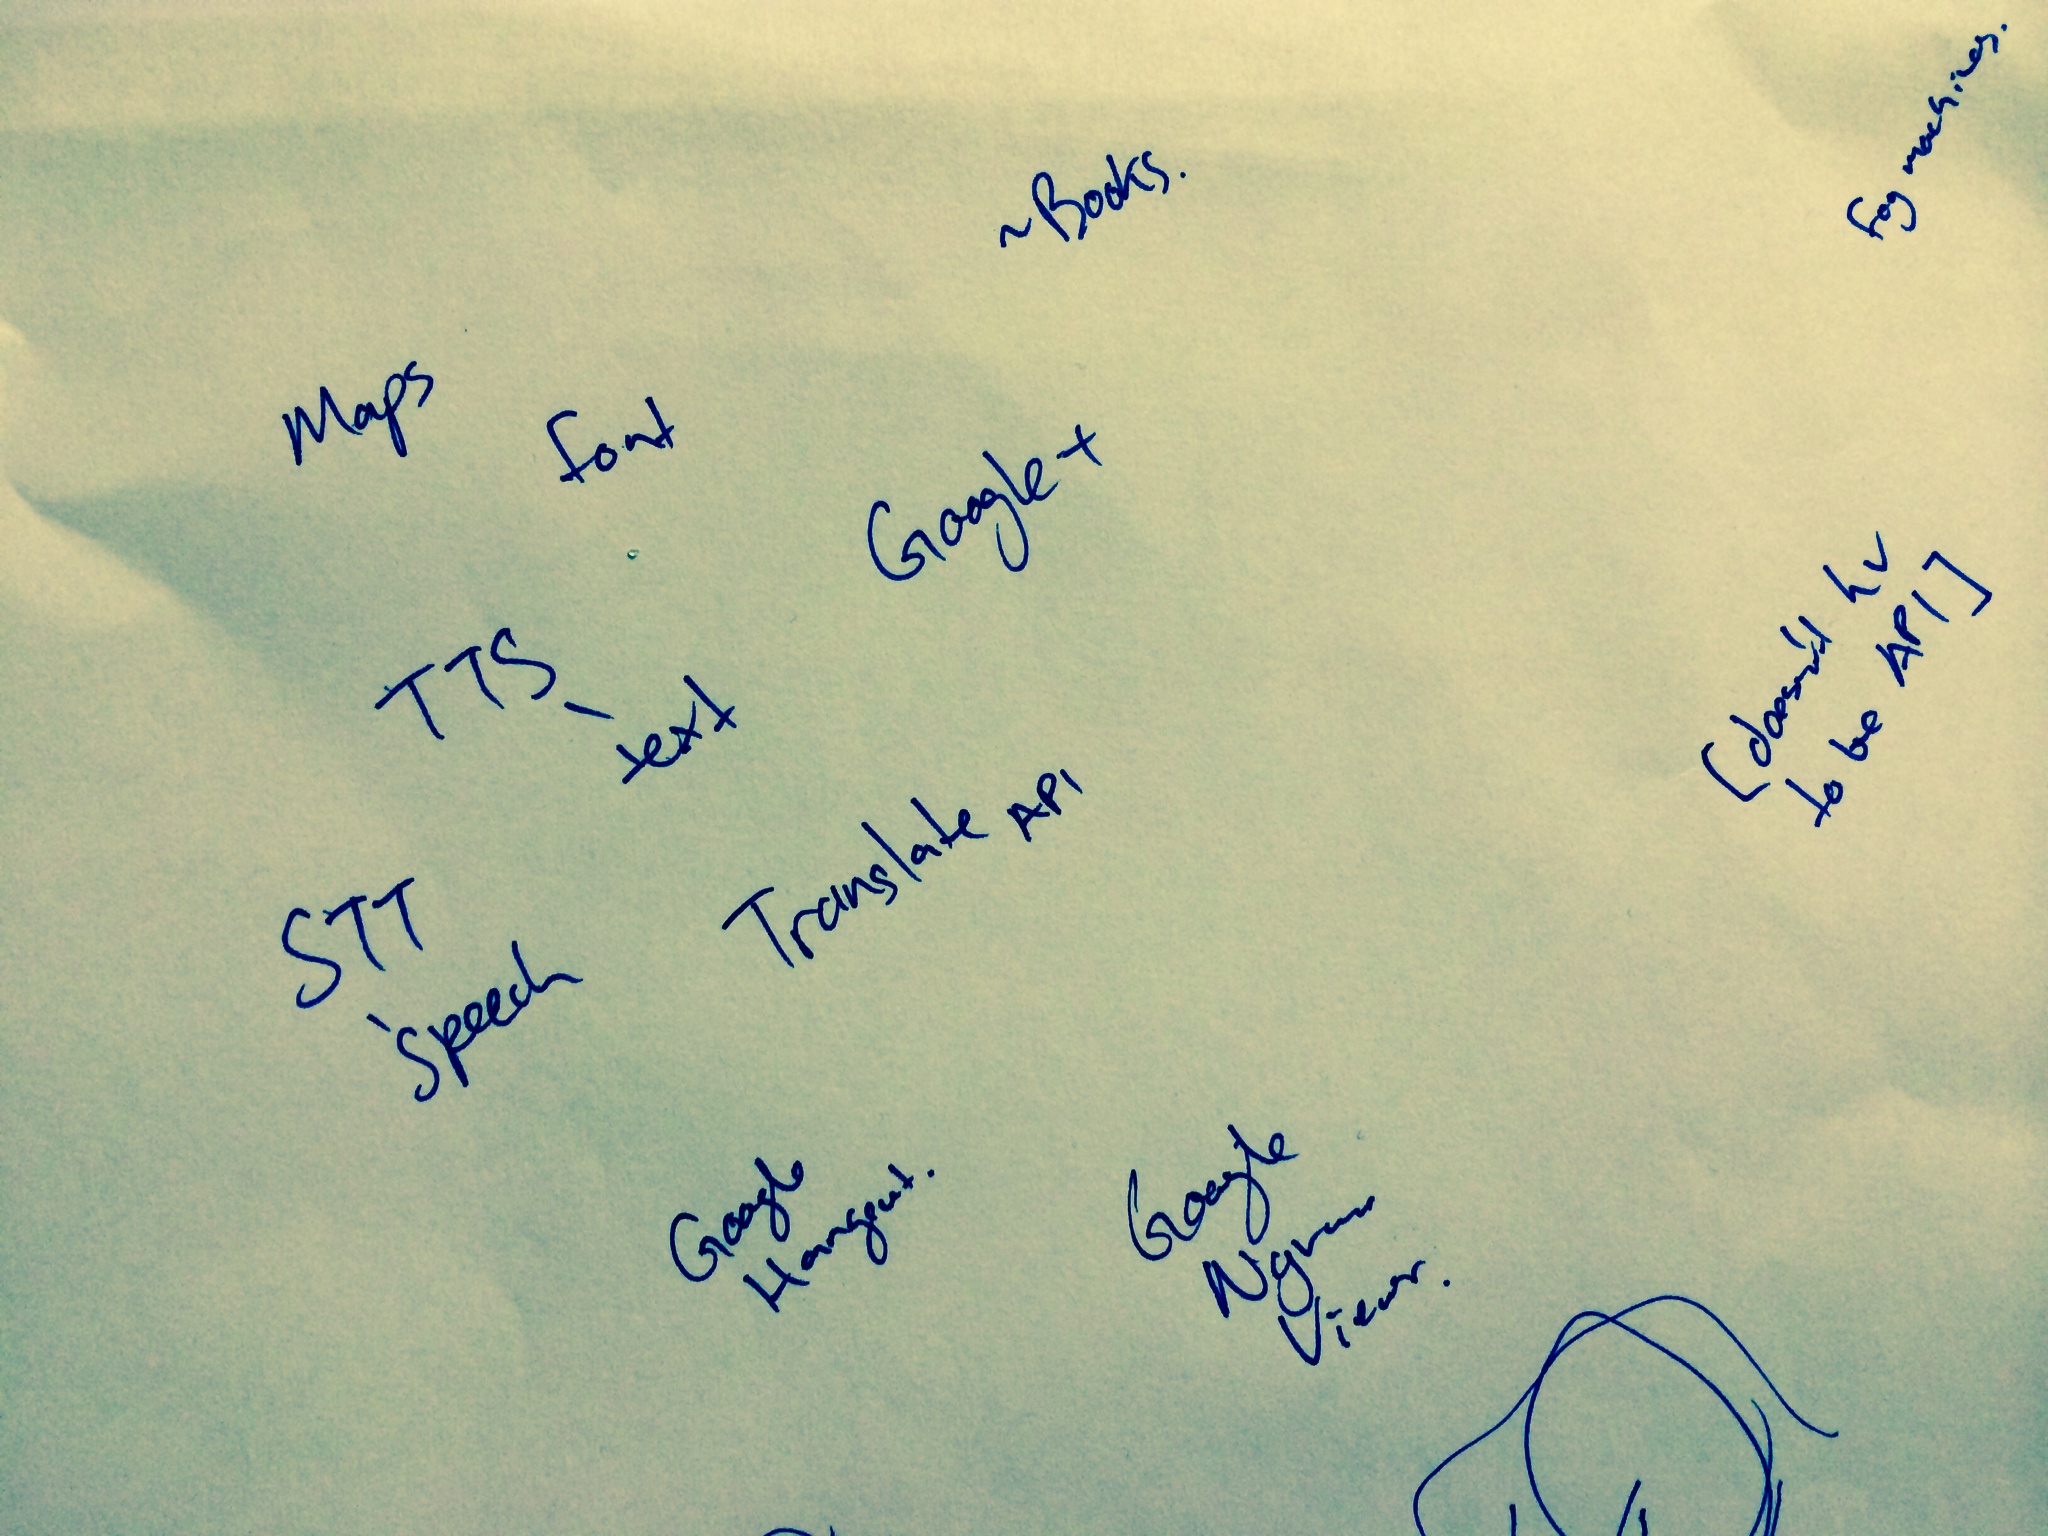 fog machines.
~Books.
Maps
font
Google+
[doesn't hv
to be API]
TTS
text
Translate API
STT
speech
Google
Hangout.
Google
Ngram
Viewr.